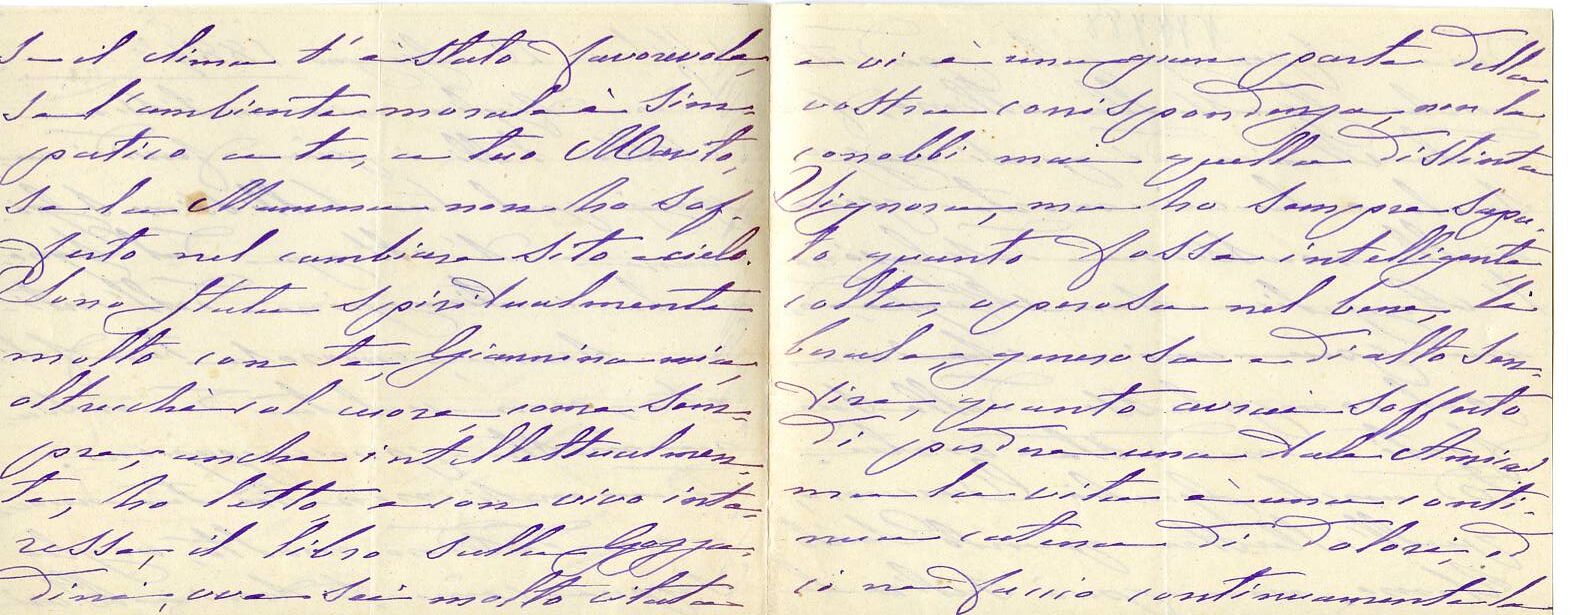 se il clima t'è stato favorevole,
se l'ambiente morale è sim=
patico a te, a tuo Marito,
se la Mamma non ha sof=
ferto nel cambiare sito e cielo.
Sono stata spiritualmente
molto con te, Giannina mia,
oltrechè col cuore, come sem=
pre, anche intellettualmen=
te, ho letto, e con vivo inte=
resse, il libro sulla Gozza=
dini, ove sei molto citata
e vi è una gran parte della
vostra corrispondenza, non la
conobbi mai quella distinta
Signora, ma ho sempre sapu=
to quanto fosse intelligente,
colta, operosa nel bene, li
berale, generosa e di alto sen=
tire, quanto avrai sofferto
di perdere una tale Amica!
ma la vita è una conti=
nua catena di dolori, ed
io ne faccio continuamente la